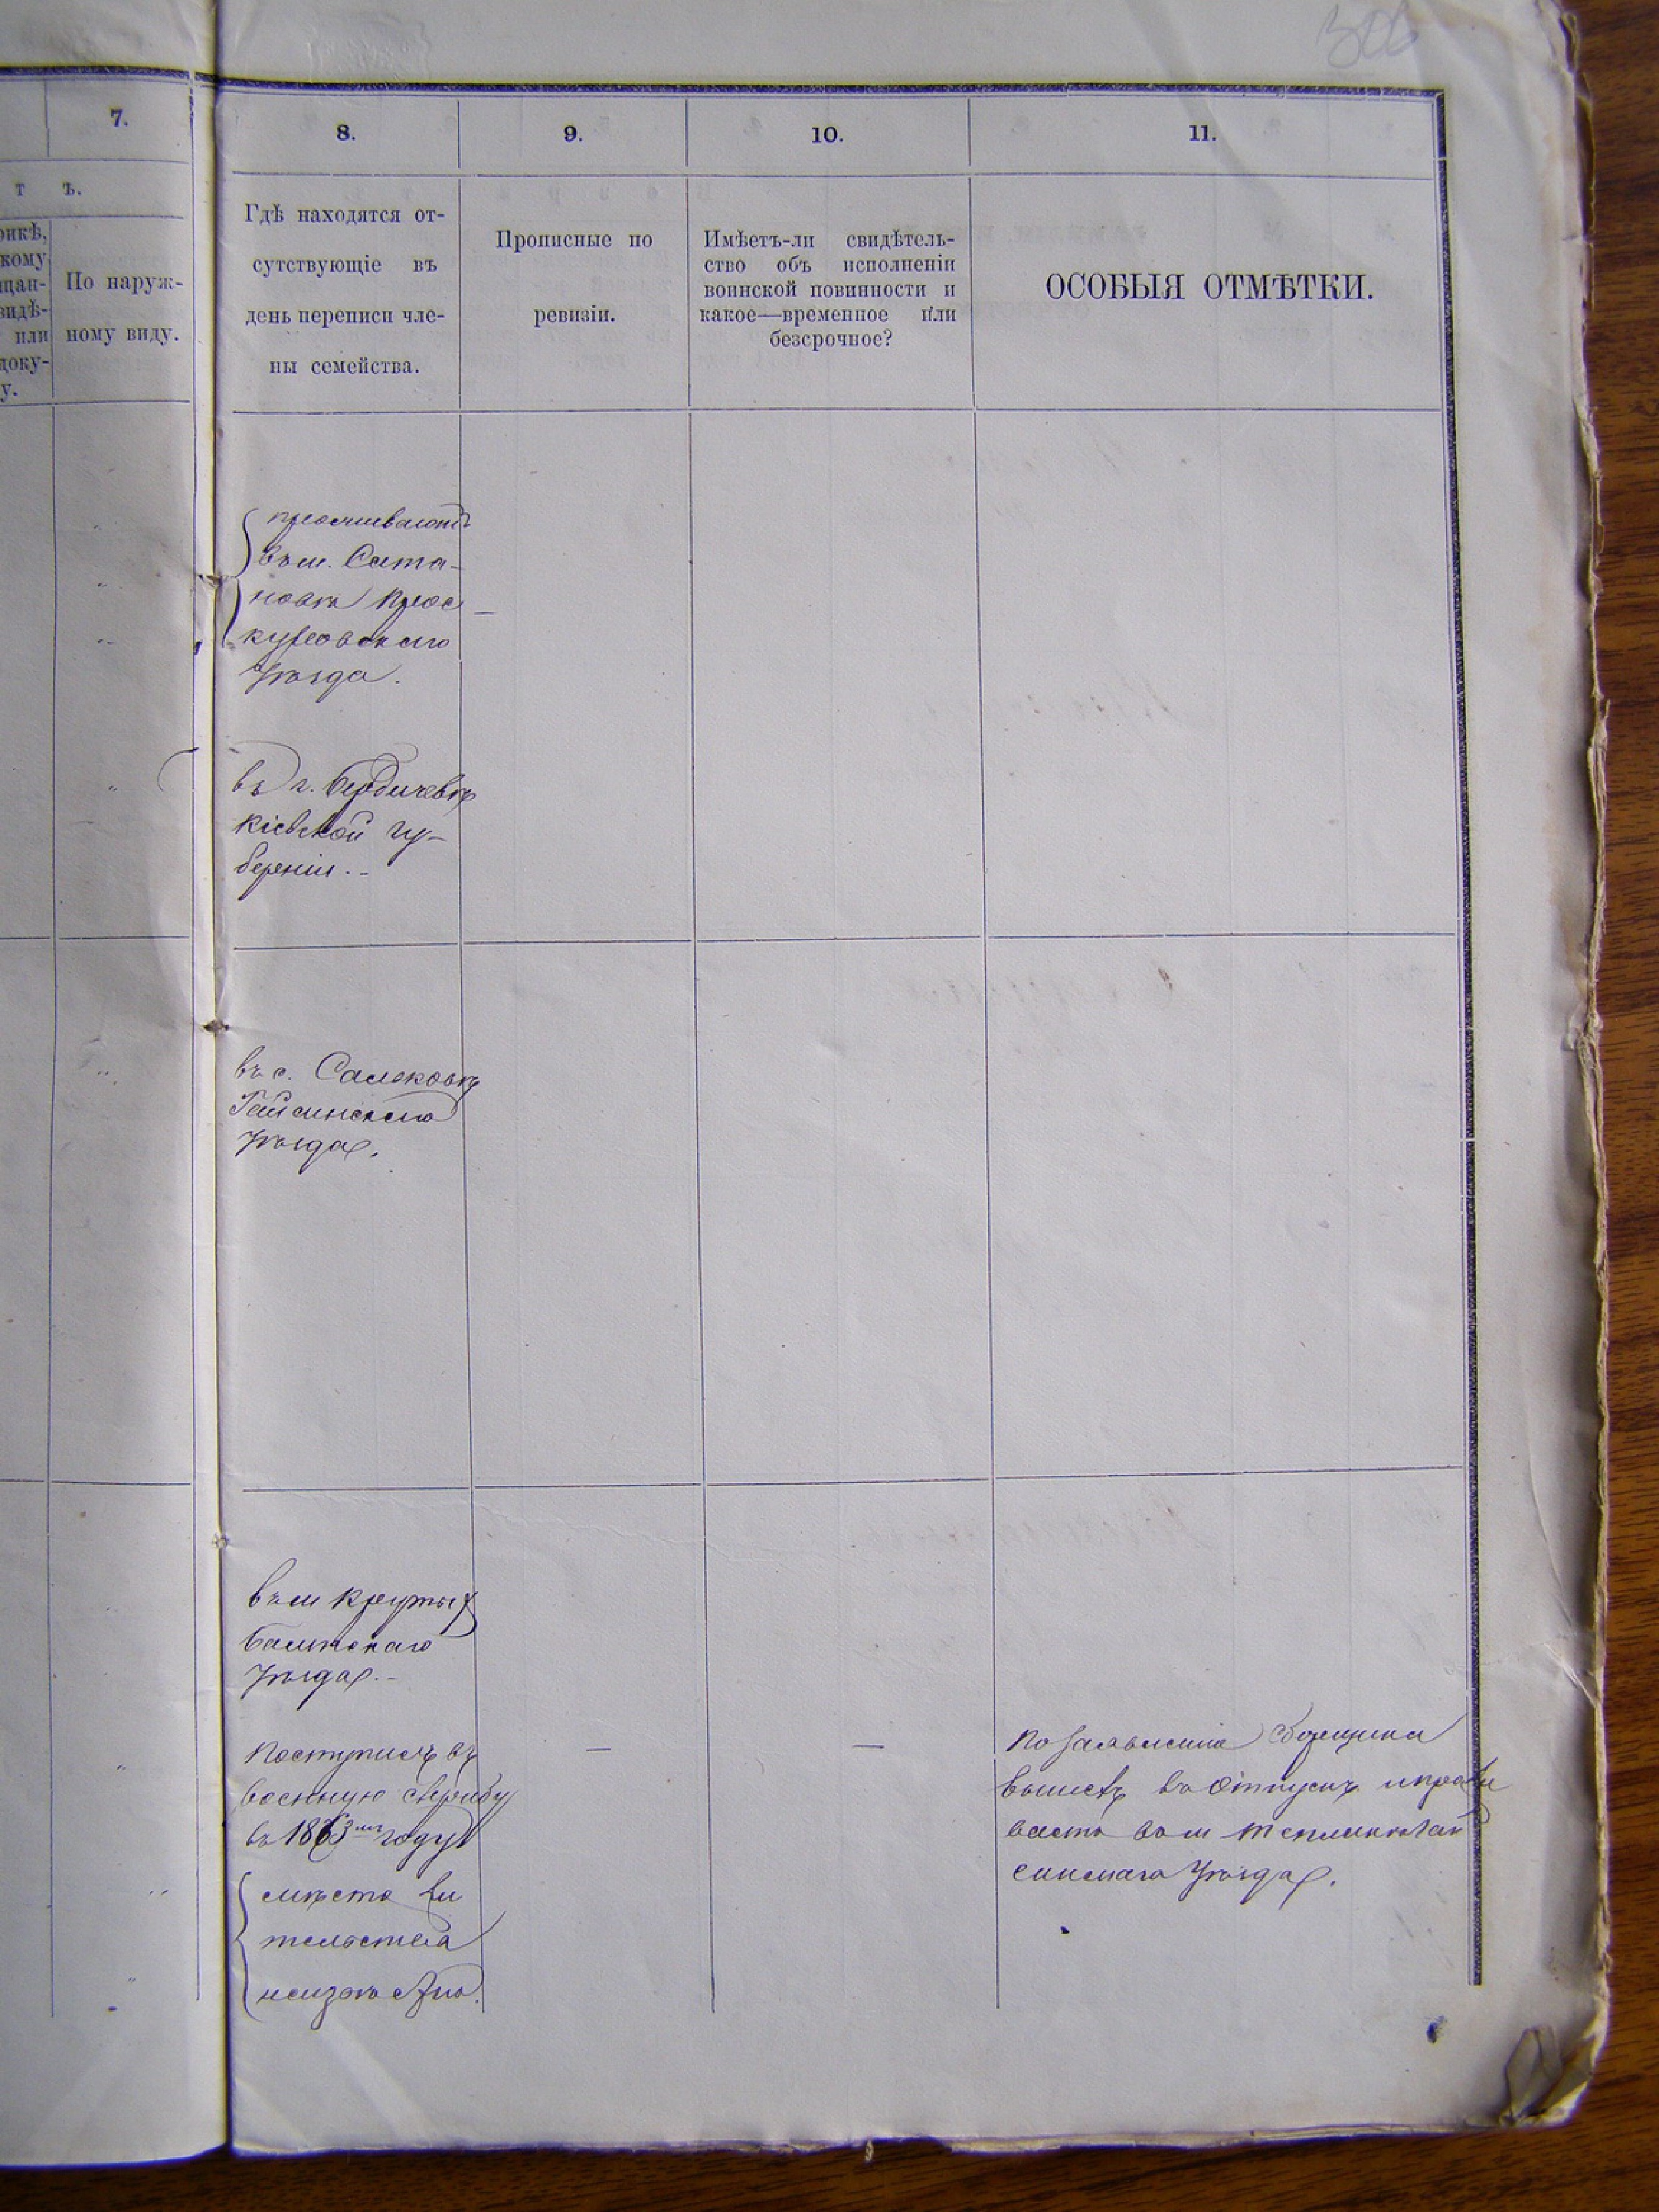 306
7.
8.
9.
10.
11.
т ъ.
рикѣ,
кому
щан-
видѣ-
или
доку-
у.
По наруж-
ному виду.
Гдѣ находятся от-
сутствующіе въ
день переписи чле-
ны семейства.
Прописные по
ревизіи.
Имѣетъ-ли свидѣтель-
ство объ исполненіи
воинской повинности и
какое—временное или
безсрочное?
ОСОБЫЯ ОТМѢТКИ.
проживаютъ
въ м. Сата-
новѣ Прос-
куровскаго
Уѣзда.
въ г. Бердичевѣ
Кіевской гу-
берніи.-
въ с. Сальковѣ
Гайсинскаго
Уѣзда.
въ м Крутых
Балтскаго
Уѣзда.-
Поступилъ въ
военную службу
въ 1863 году
мѣсто жи
тельства
неизвѣстно.
—
—
По заявленію Сборщика
вышелъ въ отпускъ и прожи
ваетъ въ м Тепликѣ Гай
синскаго Уѣзда.